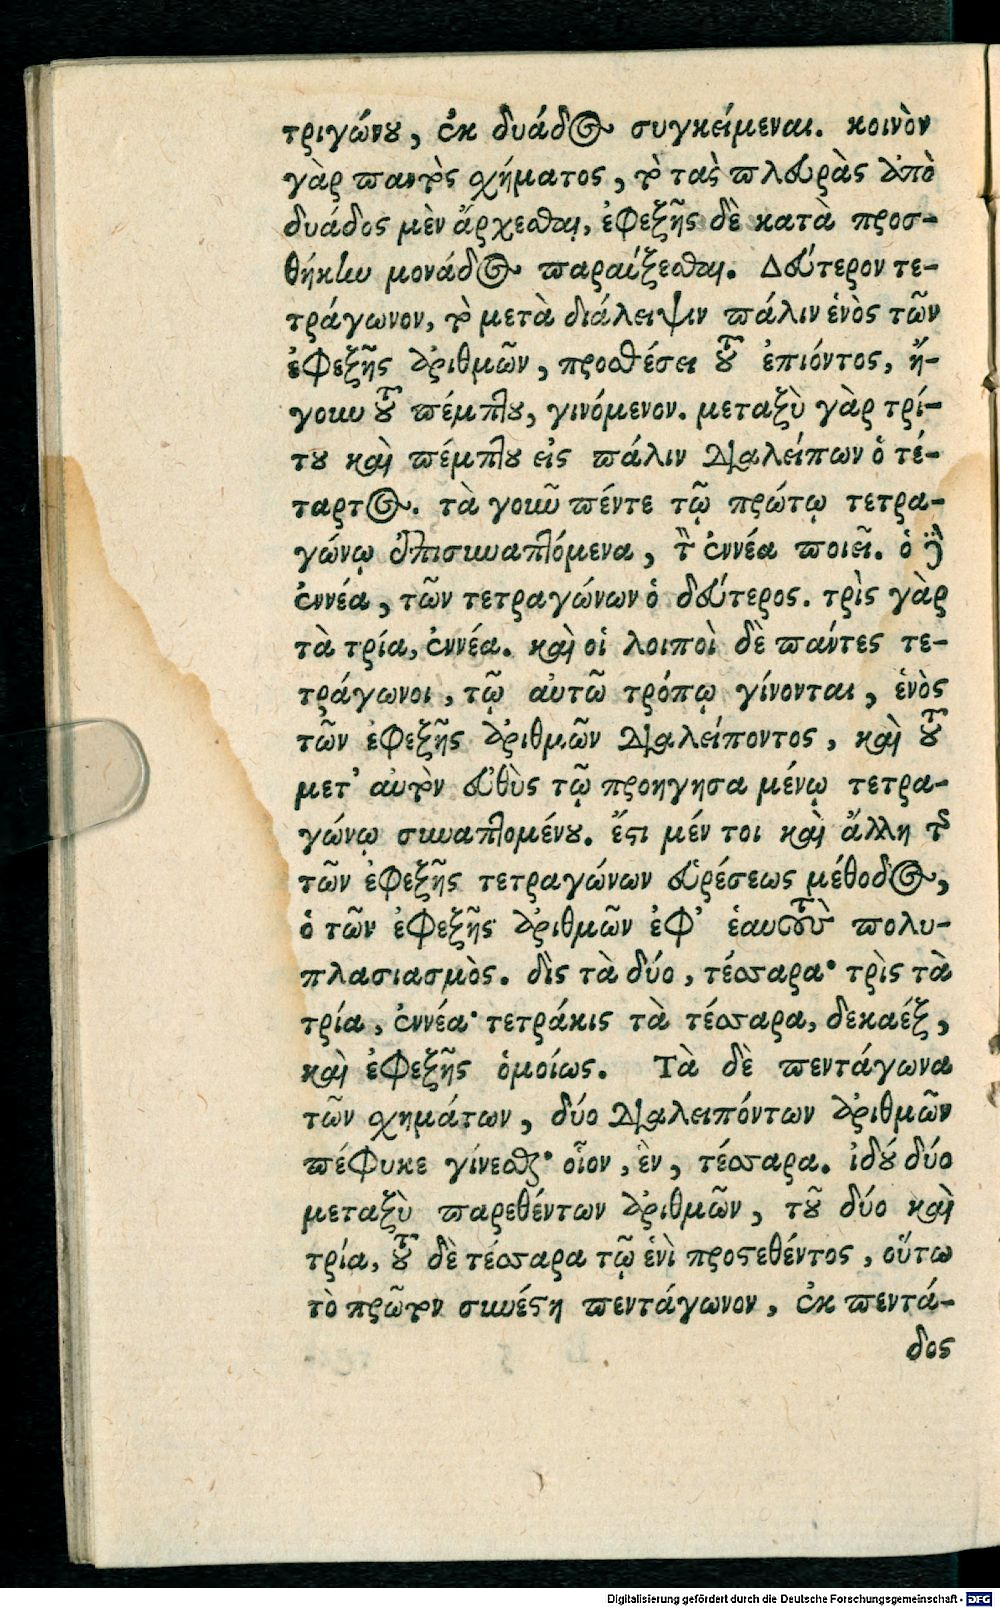 τριγώνου, ἐκ δυάδος συγκείμεναι. κοινὸν
γὰρ παντὸς σχήματος, τὸ τὰς πλευρὰς ἀπὸ
δυάδος μὲν ἄρχεσθαι, ἐφεξῆς δὲ κατὰ προσ-
θήκην μονάδος παραύξεσθαι. Δεύτερον τε-
τράγωνον, τὸ μετὰ διάλειψιν πάλιν ἑνὸς τῶν
ἐφεξῆς ἀριθμῶν, προσθέσει τοῦ ἐπιόντος, ἤ-
γουν τοῦ πέμπτου, γινόμενον. μεταξὺ γὰρ τρί-
του καὶ πέμπτου εἷς πάλιν διαλείπων ὁ τέ-
ταρτος. τὰ γοῦν πέντε τῷ πρώτῳ τετρα-
γώνῳ ἐπισυναπτόμενα, τὸν ἐννέα ποιεῖ. ὁ δὲ
ἐννέα, τῶν τετραγώνων ὁ δεύτερος. τρὶς γὰρ
τὰ τρία, ἐννέα. καὶ οἱ λοιποὶ δὲ πάντες τε-
τράγωνοι, τῷ αὐτῶ τρόπῳ γίνονται, ἑνὸς
τῶν ἐφεξῆς ἀριθμῶν διαλείποντος, καὶ τοῦ
μετ' αὐτὸν εὐθὺς τῷ προηγησαμένῳ τετρα-
γώνῳ συναπτομένου. ἔστι μέν τοι καὶ ἄλλη τῆς
τῶν ἐφεξῆς τετραγώνων εὑρέσεως μέθοδος,
ὁ τῶν ἐφεξῆς ἀριθμῶν ἐφ' ἑαυτοὺς πολυ-
πλασιασμὸς. δὶς τὰ δύο, τέσσαρα· τρὶς τὰ
τρία, ἐννέα· τετράκις τὰ τέσσαρα, δεκαέξ,
καὶ ἐφεξῆς ὁμοίως. Τὰ δὲ πεντάγωνα
τῶν σχημάτων, δύο διαλειπόντων ἀριθμῶν
πέφυκε γίνεσθαι· οἷον, ἓν, τέσσαρα. ἰδοὺ δύο
μεταξὺ παρεθέντων ἀριθμῶν, τοῦ δύο καὶ
τρία, τοῦ δὲ τέσσαρα τῷ ἑνὶ προςεθέντος, οὕτω
τὸ πρῶτον συνέστη πεντάγωνον, ἐκ πεντά-
δος
Digitalisierung gefördert durch die Deutsche Forschungsgemeinschaft - DFG